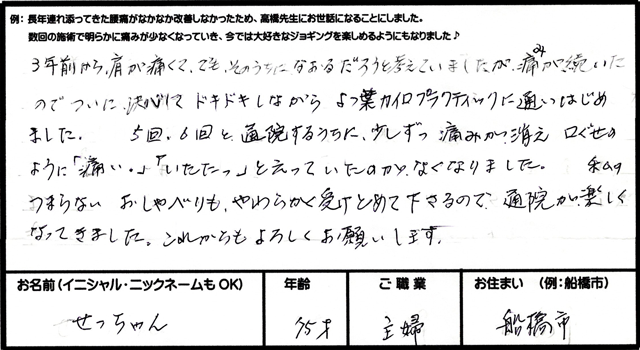 例：長年連れ添ってきた腰痛がなかなか改善しなかったため、高橋先生にお世話になることにしました。
数回の施術で明らかに痛みが少なくなっていき、今では大好きなジョギングを楽しめるようにもなりました♪
3年前から、肩が痛くて、でも、そのうちになおるだろうと考えていましたが、痛みが続いた
のでついに、決心してドキドキしながら よつ葉カイロプラクティックに通いはじめ
ました。 5回、6回と、通院するうちに、少しずつ 痛みが消え 口ぐせの
ように「痛い。」「いたたっ」と云っていたのがなくなりました。 私の
つまらない おしゃべりも、やわらかく受けとめて下さるので、通院が楽しく
なってきました。これからもよろしくお願いします。
お名前（イニシャル・ニックネームもOK） 年齢 ご職業 お住まい （例：船橋市）
せっちゃん 75才 主婦 船橋市